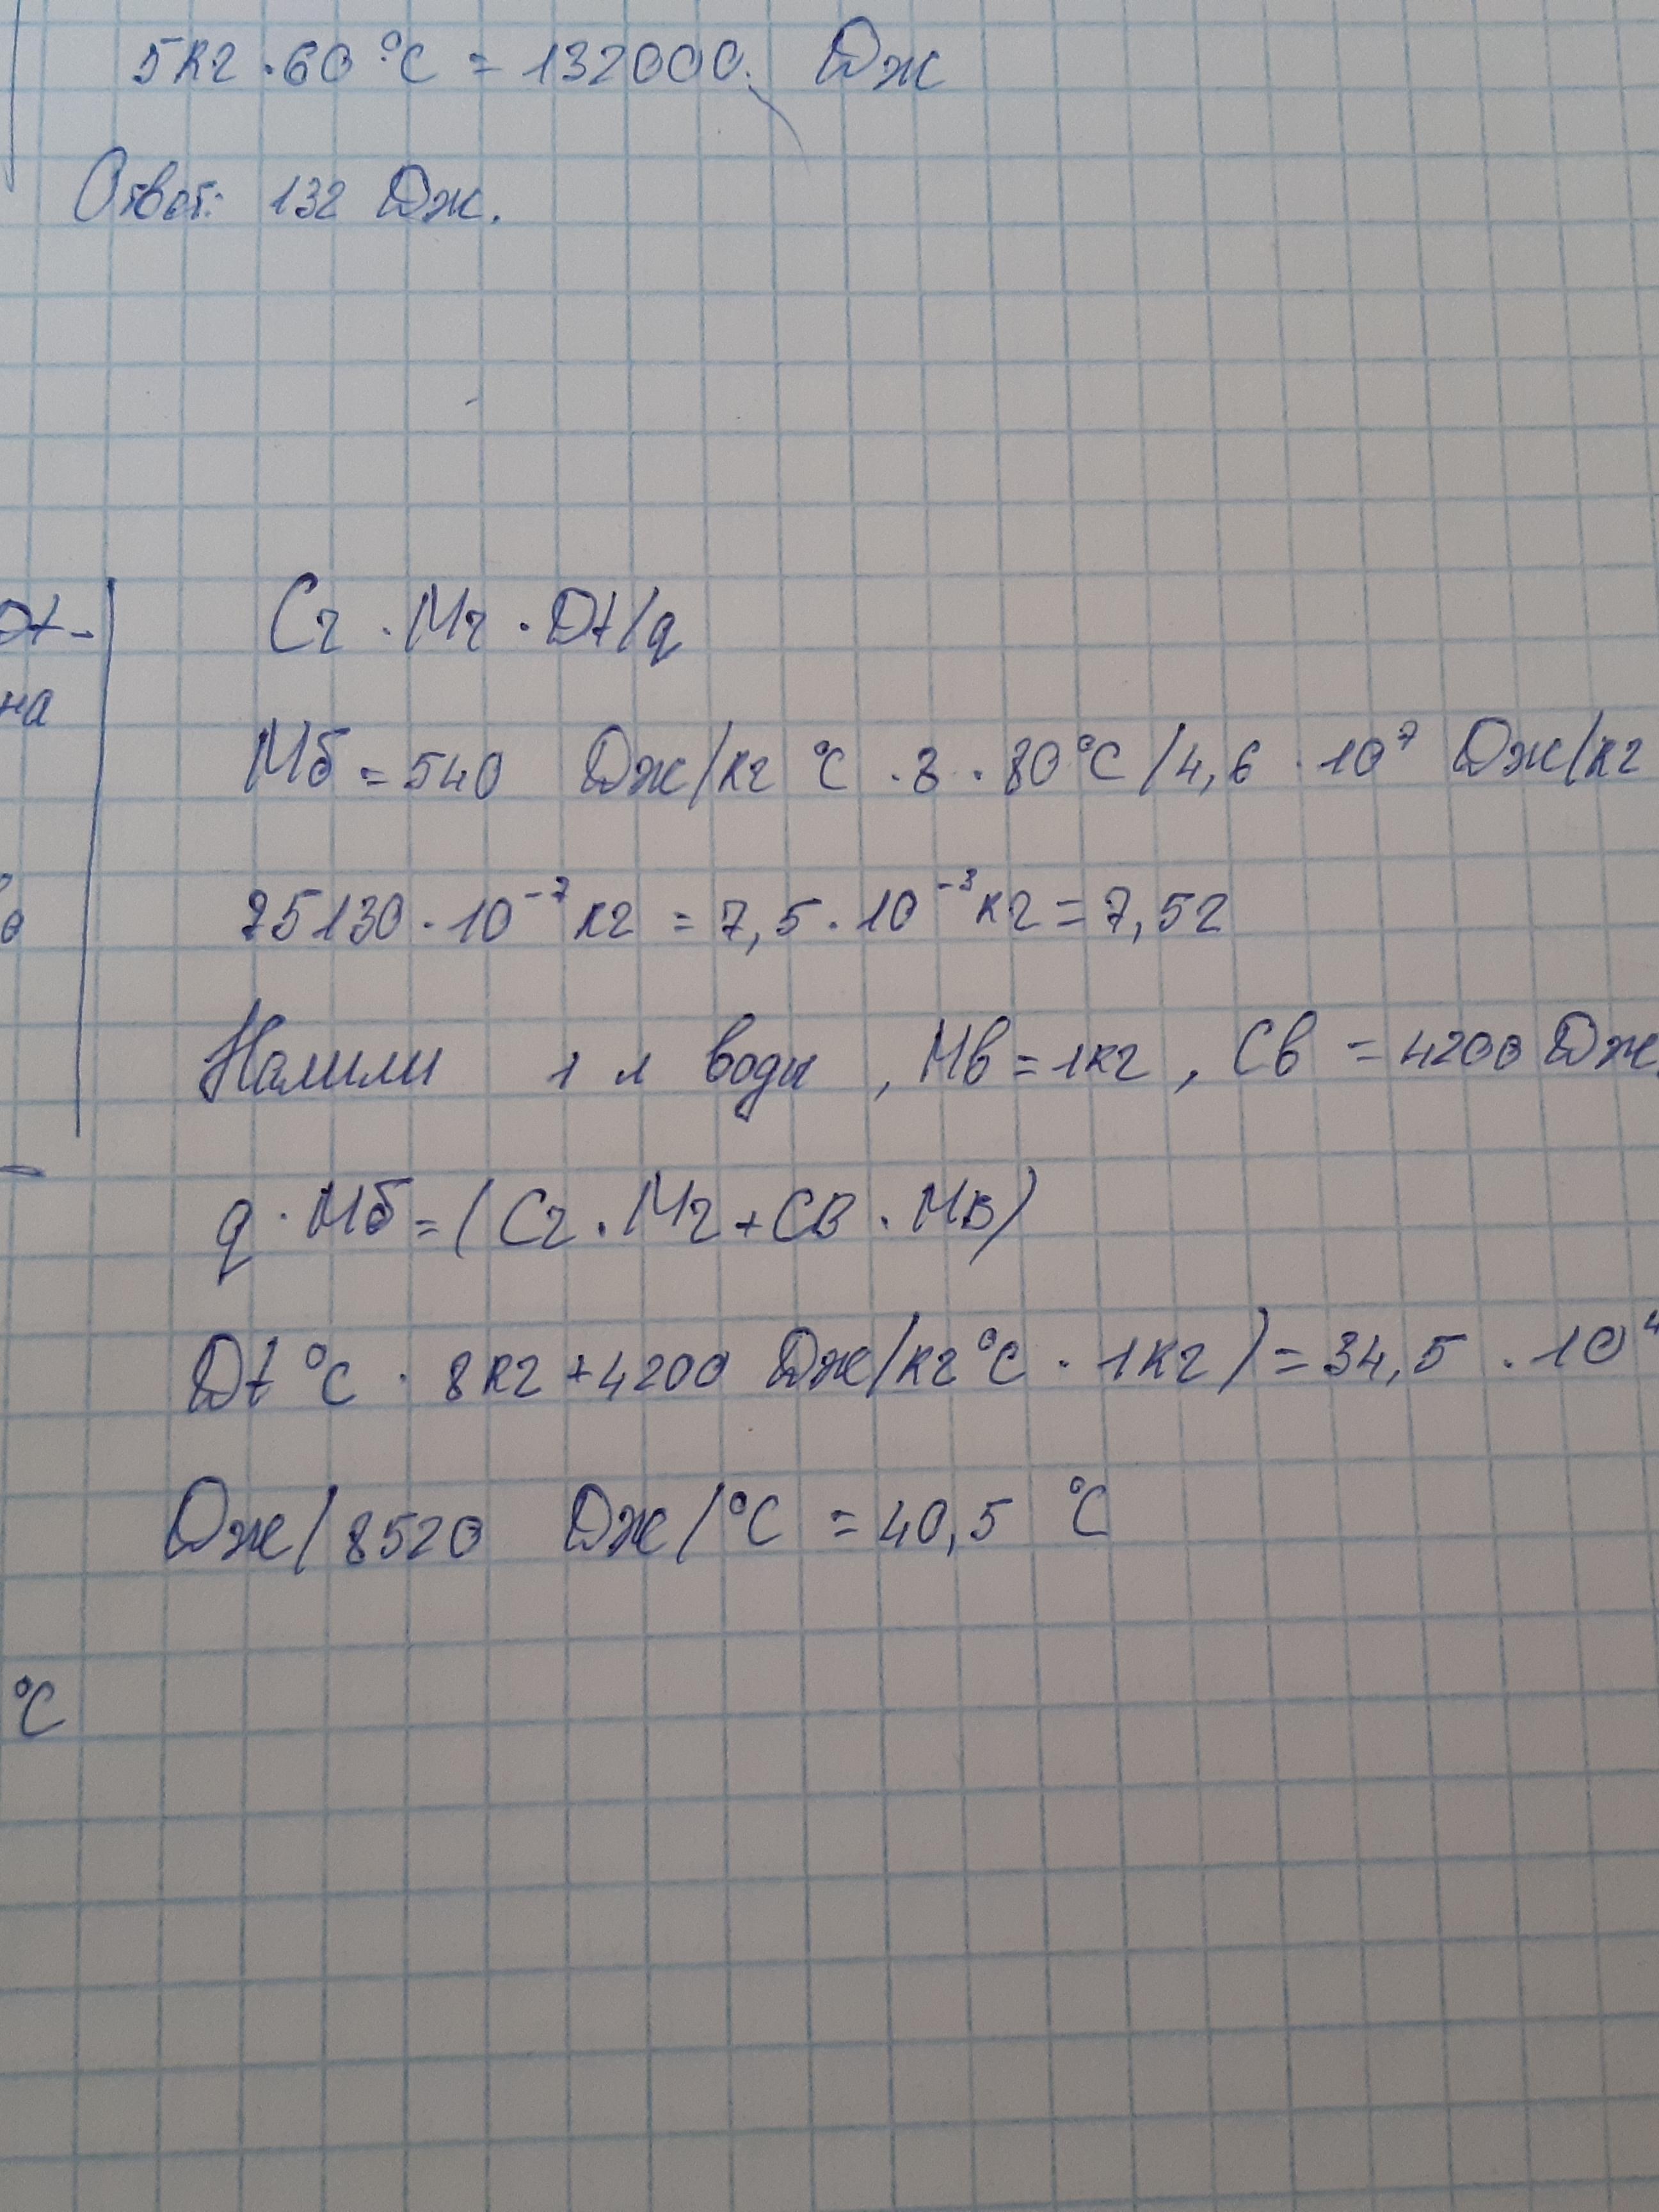 5кг · 60 °C = 132000. Дж
Ответ: 132 Дж.
Dt-
Сч · Мч · Dt/q
на
Мб = 540 Дж/кг °C · 8 · 80°C / 4,6 · 10⁷ Дж/кг
75130 · 10⁻⁷ кг = 7,5 · 10⁻³ кг = 7,5г
Налили 1 л воды , Мв = 1кг , Св = 4200 Дж
q · Мб = (Сч · Мч + СВ · Мв)
Dt °C · 8кг + 4200 Дж/кг°C · 1кг) = 34,5 · 10⁴
Дж/8520 Дж/°C = 40,5 °C
°C